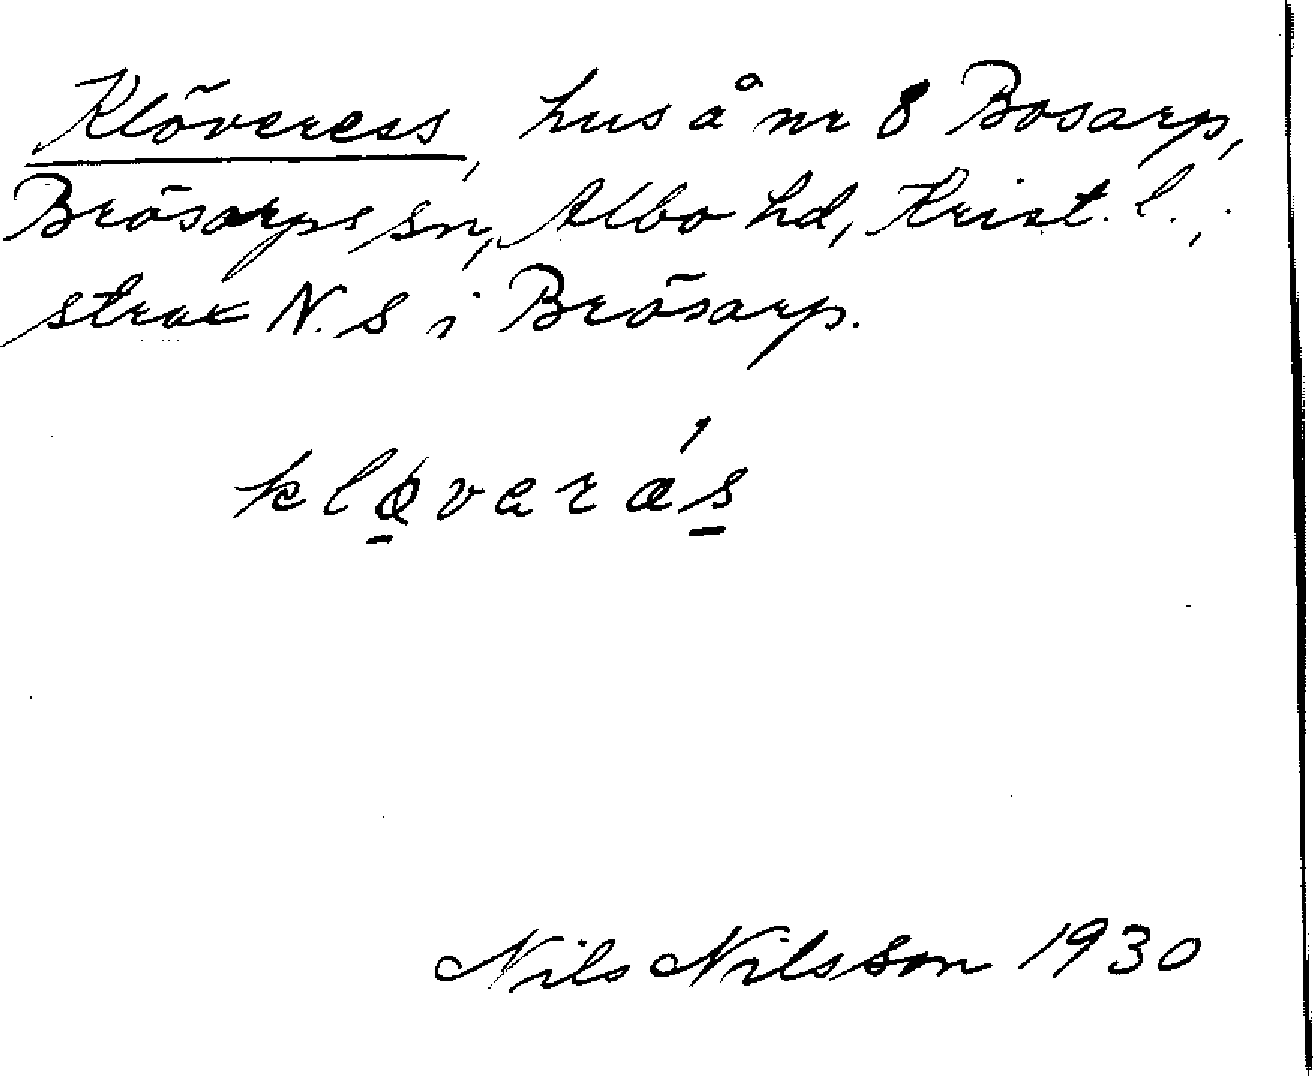 Klöveress, hus å nr 8 Bosarp,
Brösarps sn, Albo hd, Krist. l.,
strax N. s i Brösarp.
kløvaräs
Nils Nilsson 1930